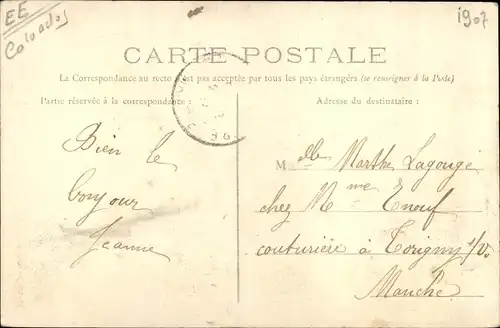 EE
Calvados
1907
CARTE POSTALE
La Correspondance au recto n'est pas acceptée par tous les pays étrangers (se renseigner à la Poste)
Partie réservée à la correspondance :
Adresse du destinataire :
Bien le
bonjour
Jeanne
Mlle Marthe Lagouge
chez Mme Enouf
couturière à Torigny s/V.
Manche